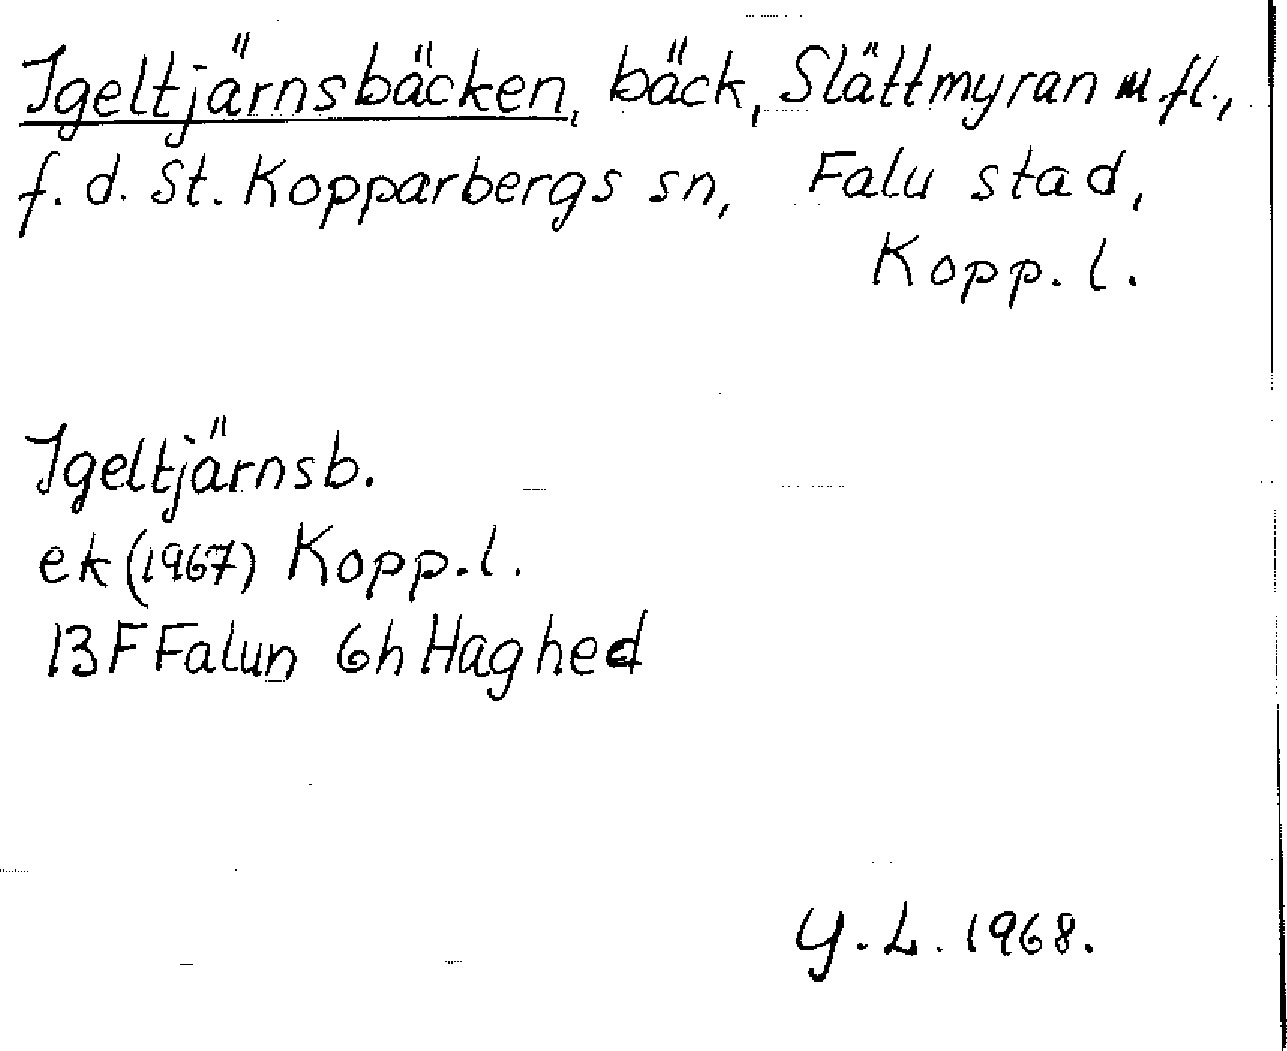 Igeltjärnsbäcken, bäck, Slättmyran m.fl.,
f.d. St. Kopparbergs sn, Falu stad,
Kopp.l.
Igeltjärnsb.
ek (1967) Kopp.l.
13F Falun 6h Haghed
Y.L. 1968.